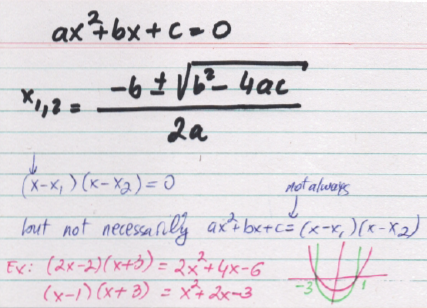 ax²+bx+c=0
x₁,₂ = (-b ± √(b²-4ac)) / 2a
(x-x₁)(x-x₂)=0
not always
but not necessarily ax²+bx+c=(x-x₁)(x-x₂)
Ex: (2x-2)(x+3) = 2x²+4x-6
(x-1)(x+3) = x²+2x-3
-3 1